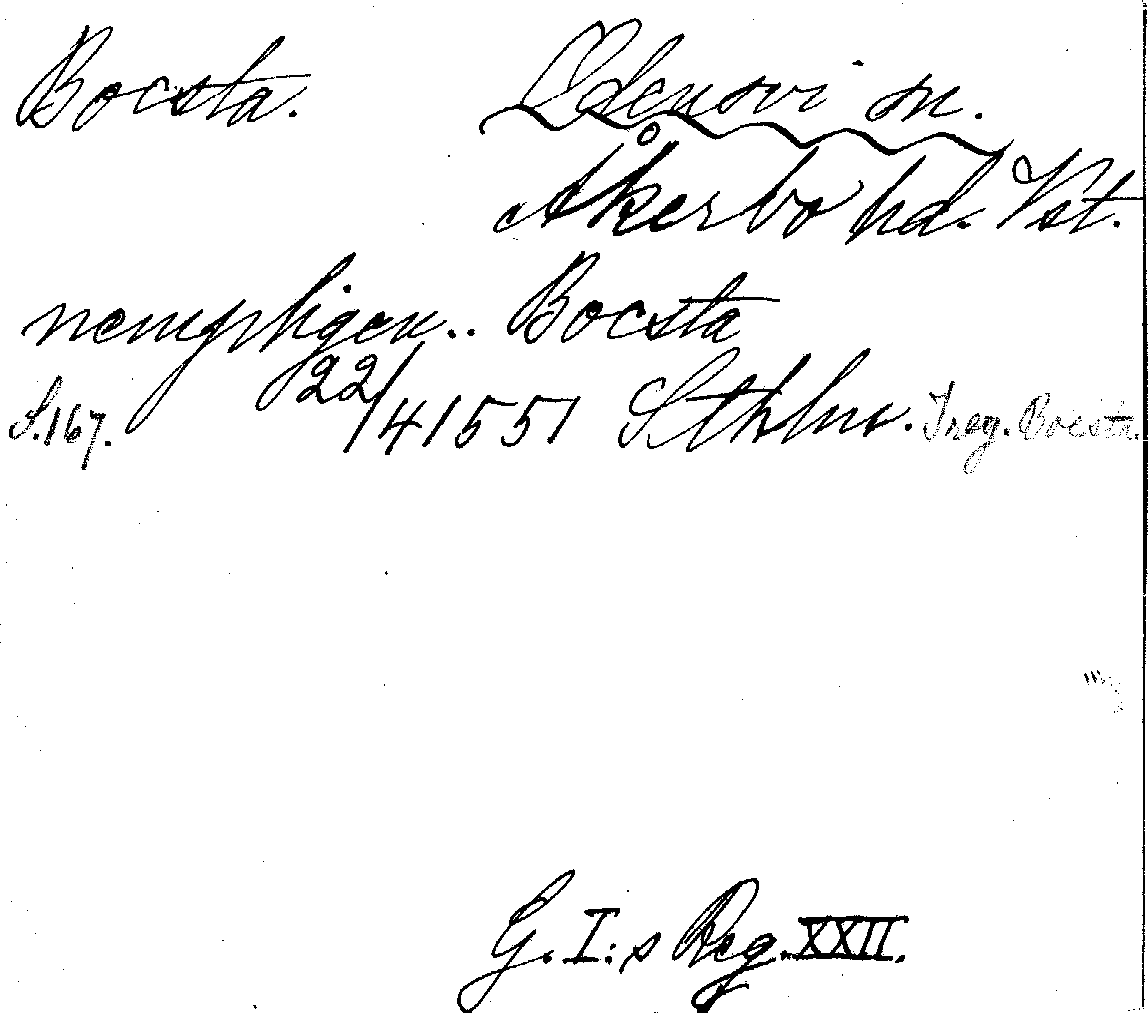 Bocsta. Odensvi sn.
Åkerbo hd. Vst.
nempligen.. Bocsta
S.167. 22/4 1551 Sthlm. Freg. Bocsta.
G. I:s Reg. XXII.